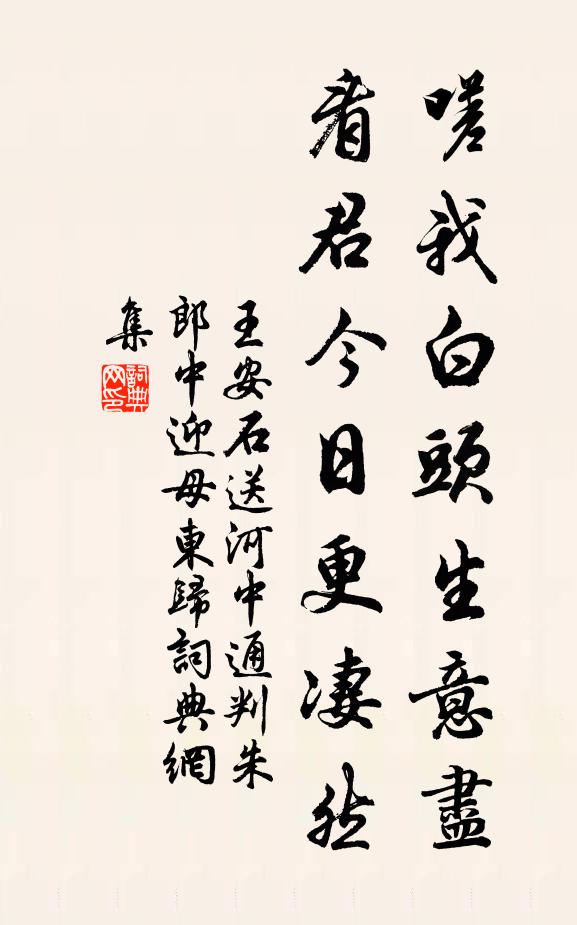 嗟我白頭生意盡
看君今日更凄然
王安石送河中通判朱
郎中迎母東歸詞典網
集
詞典
网印